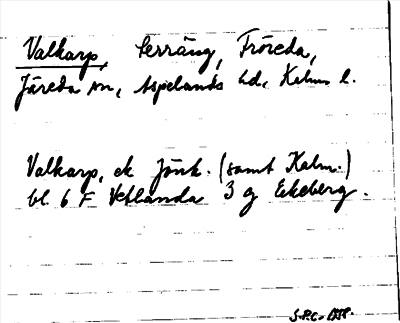 Valkarp, Serräng, Fröreda,
Järeda sn, Aspelands hd, Kalm l.
Valkarp, ek Jönk. (samt Kalm.)
bl. 6 F Vetlanda 3 g Ekeberg.